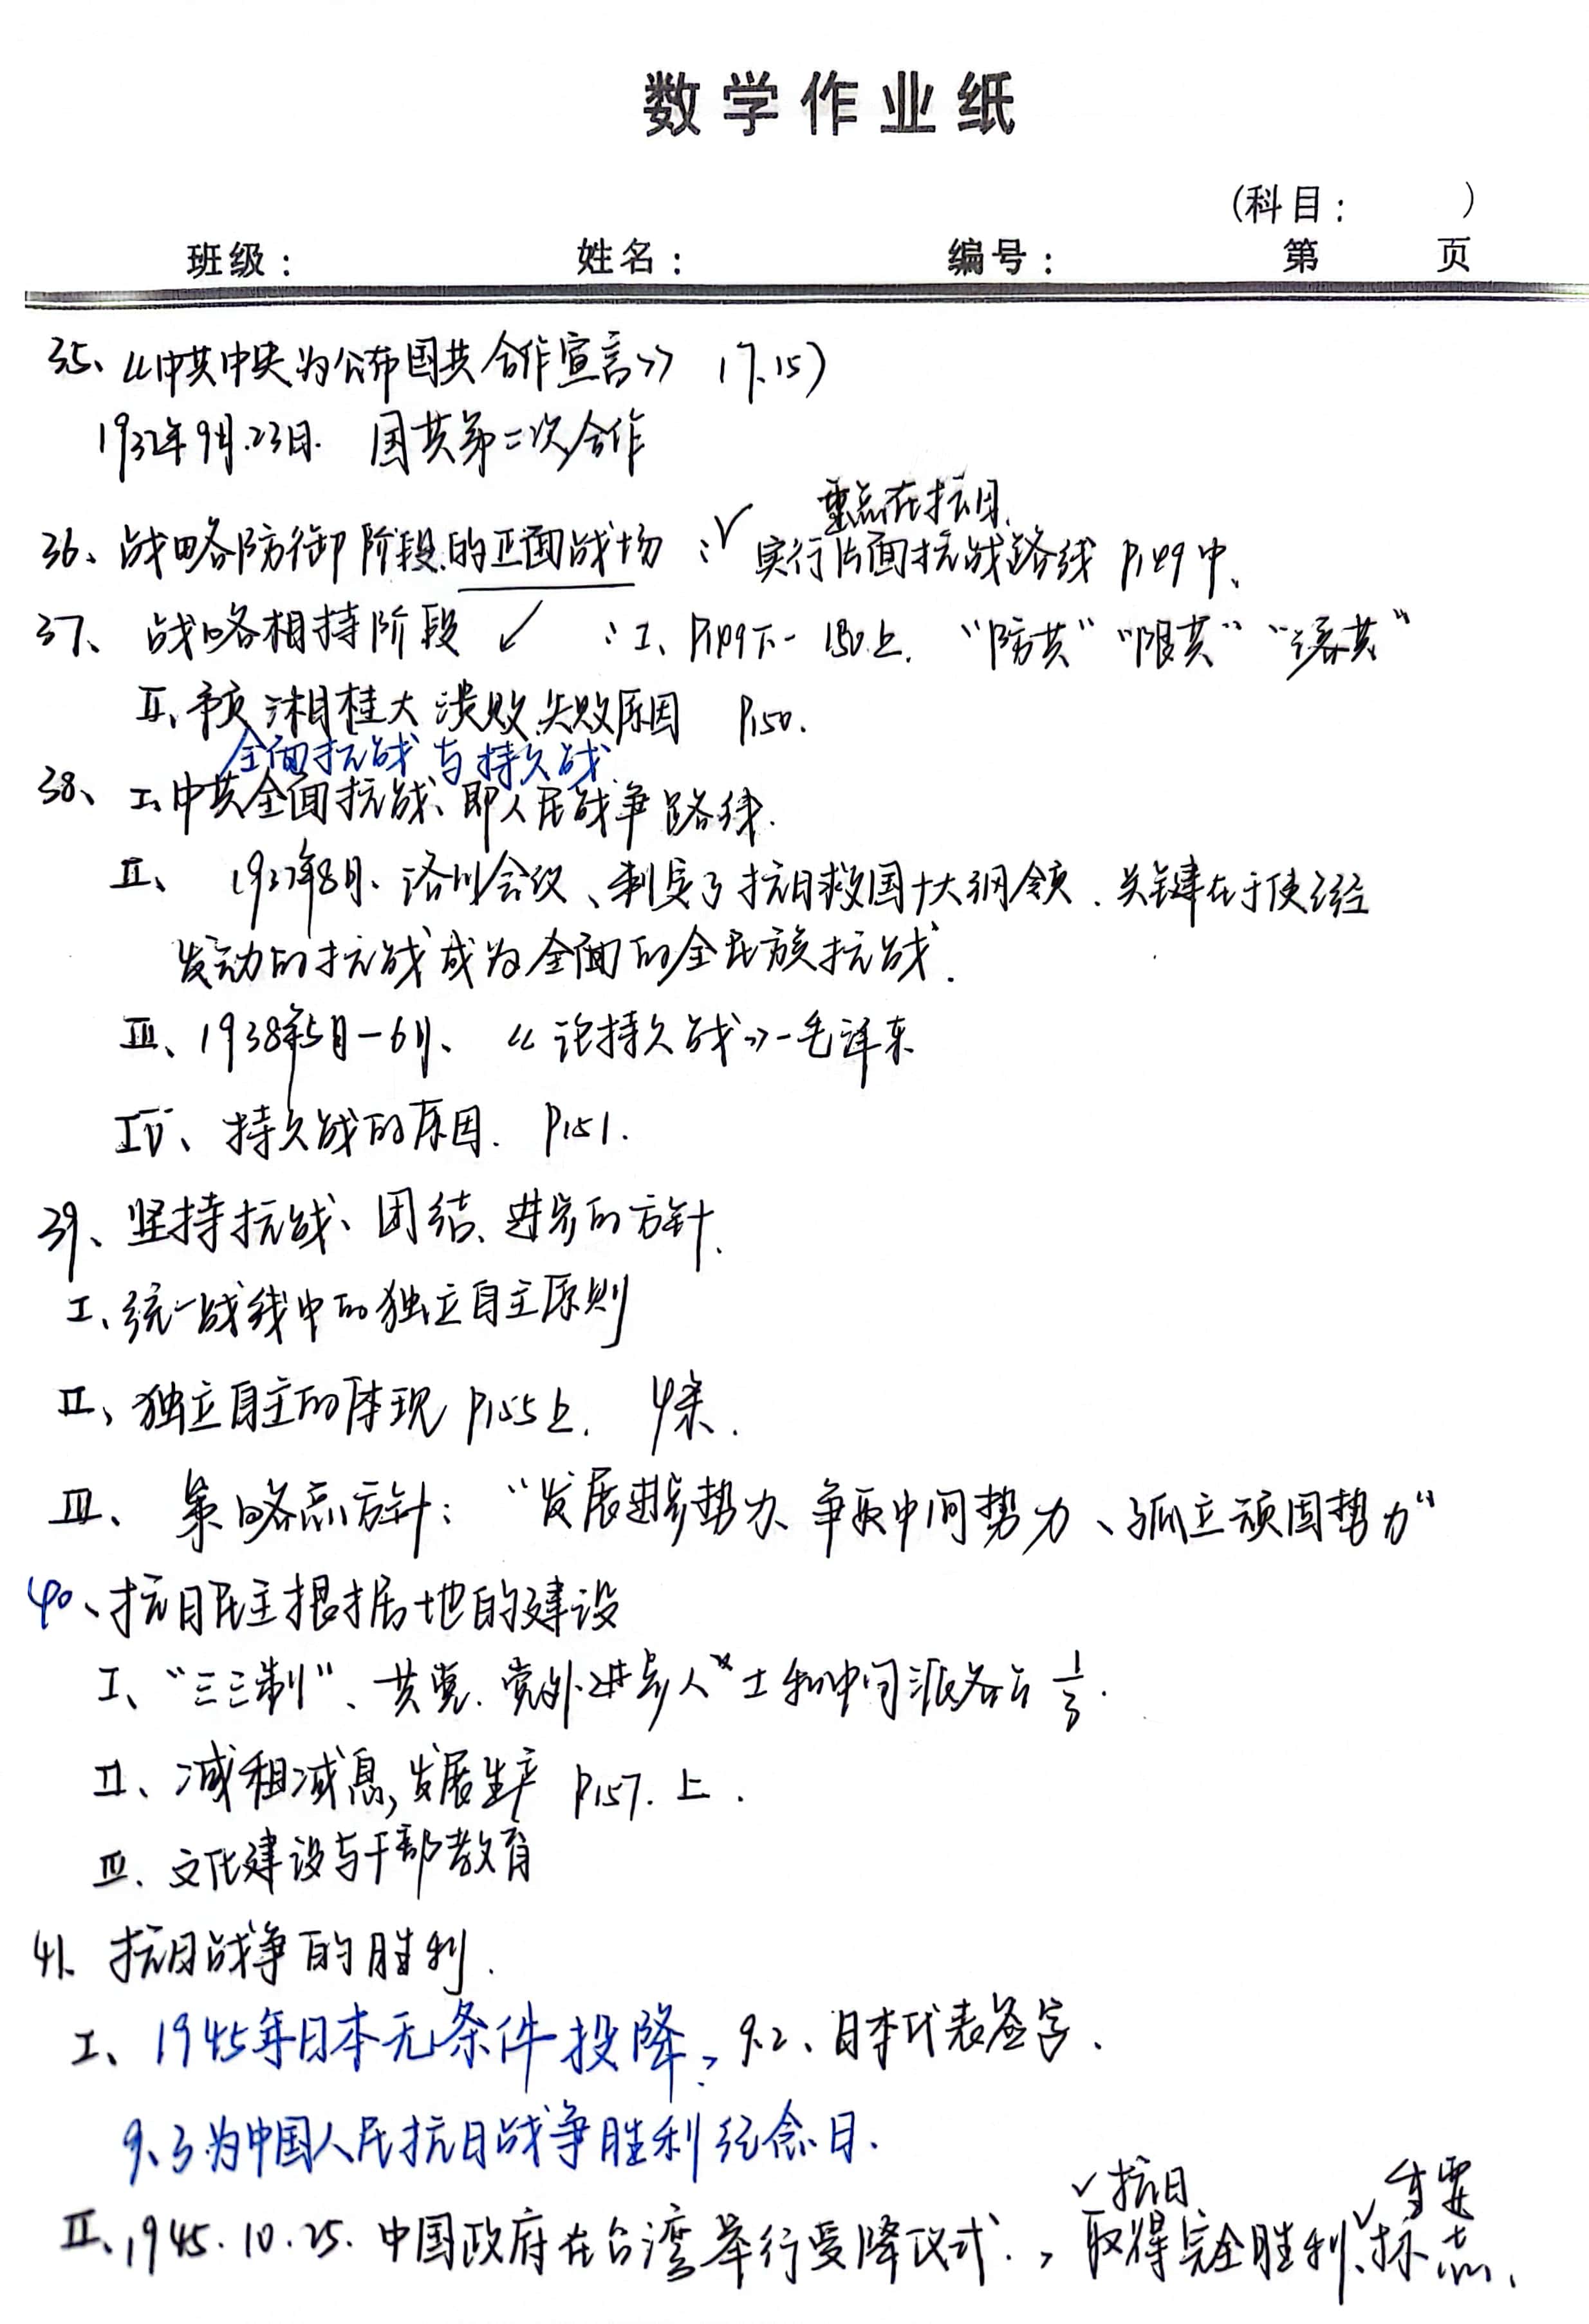 数学作业纸
(科目:    )
班级:    姓名:    编号:    第    页
35、《中共中央为公布国共合作宣言》(7.15)
1937年9月.23日. 国共第二次合作
重点在抗日.
36、战略防御阶段的正面战场:实行片面抗战路线 P149中、
37、战略相持阶段:I、P149下-150上. “防共”“限共”“溶共”
II、湘桂大溃败失败原因 P150.
全面抗战与持久战
38、I、中共全面抗战、即人民战争路线.
II、1937年8月、洛川会议、制定了抗日救国十大纲领.关键在于使已经
发动的抗战成为全面的全民族抗战.
III、1938年5月-6月、《论持久战》-毛泽东
IV、持久战的原因. P151.
39、坚持抗战、团结、进步的方针、
I、统一战线中的独立自主原则
II、独立自主的体现 P155上. 4条.
III、策略总方针:“发展进步势力、争取中间势力、孤立顽固势力”
40、抗日民主根据地的建设
I、“三三制”、共党.党外进步人士和中间派各占1/3.
II、减租减息,发展生产 P157.上.
III.文化建设与干部教育
41、抗日战争的胜利.
I、1945年日本无条件投降,9.2、日本代表签字.
9.3为中国人民抗日战争胜利纪念日.
抗日 重要
II、1945.10.25.中国政府在台湾举行受降仪式.,取得完全胜利、标志、